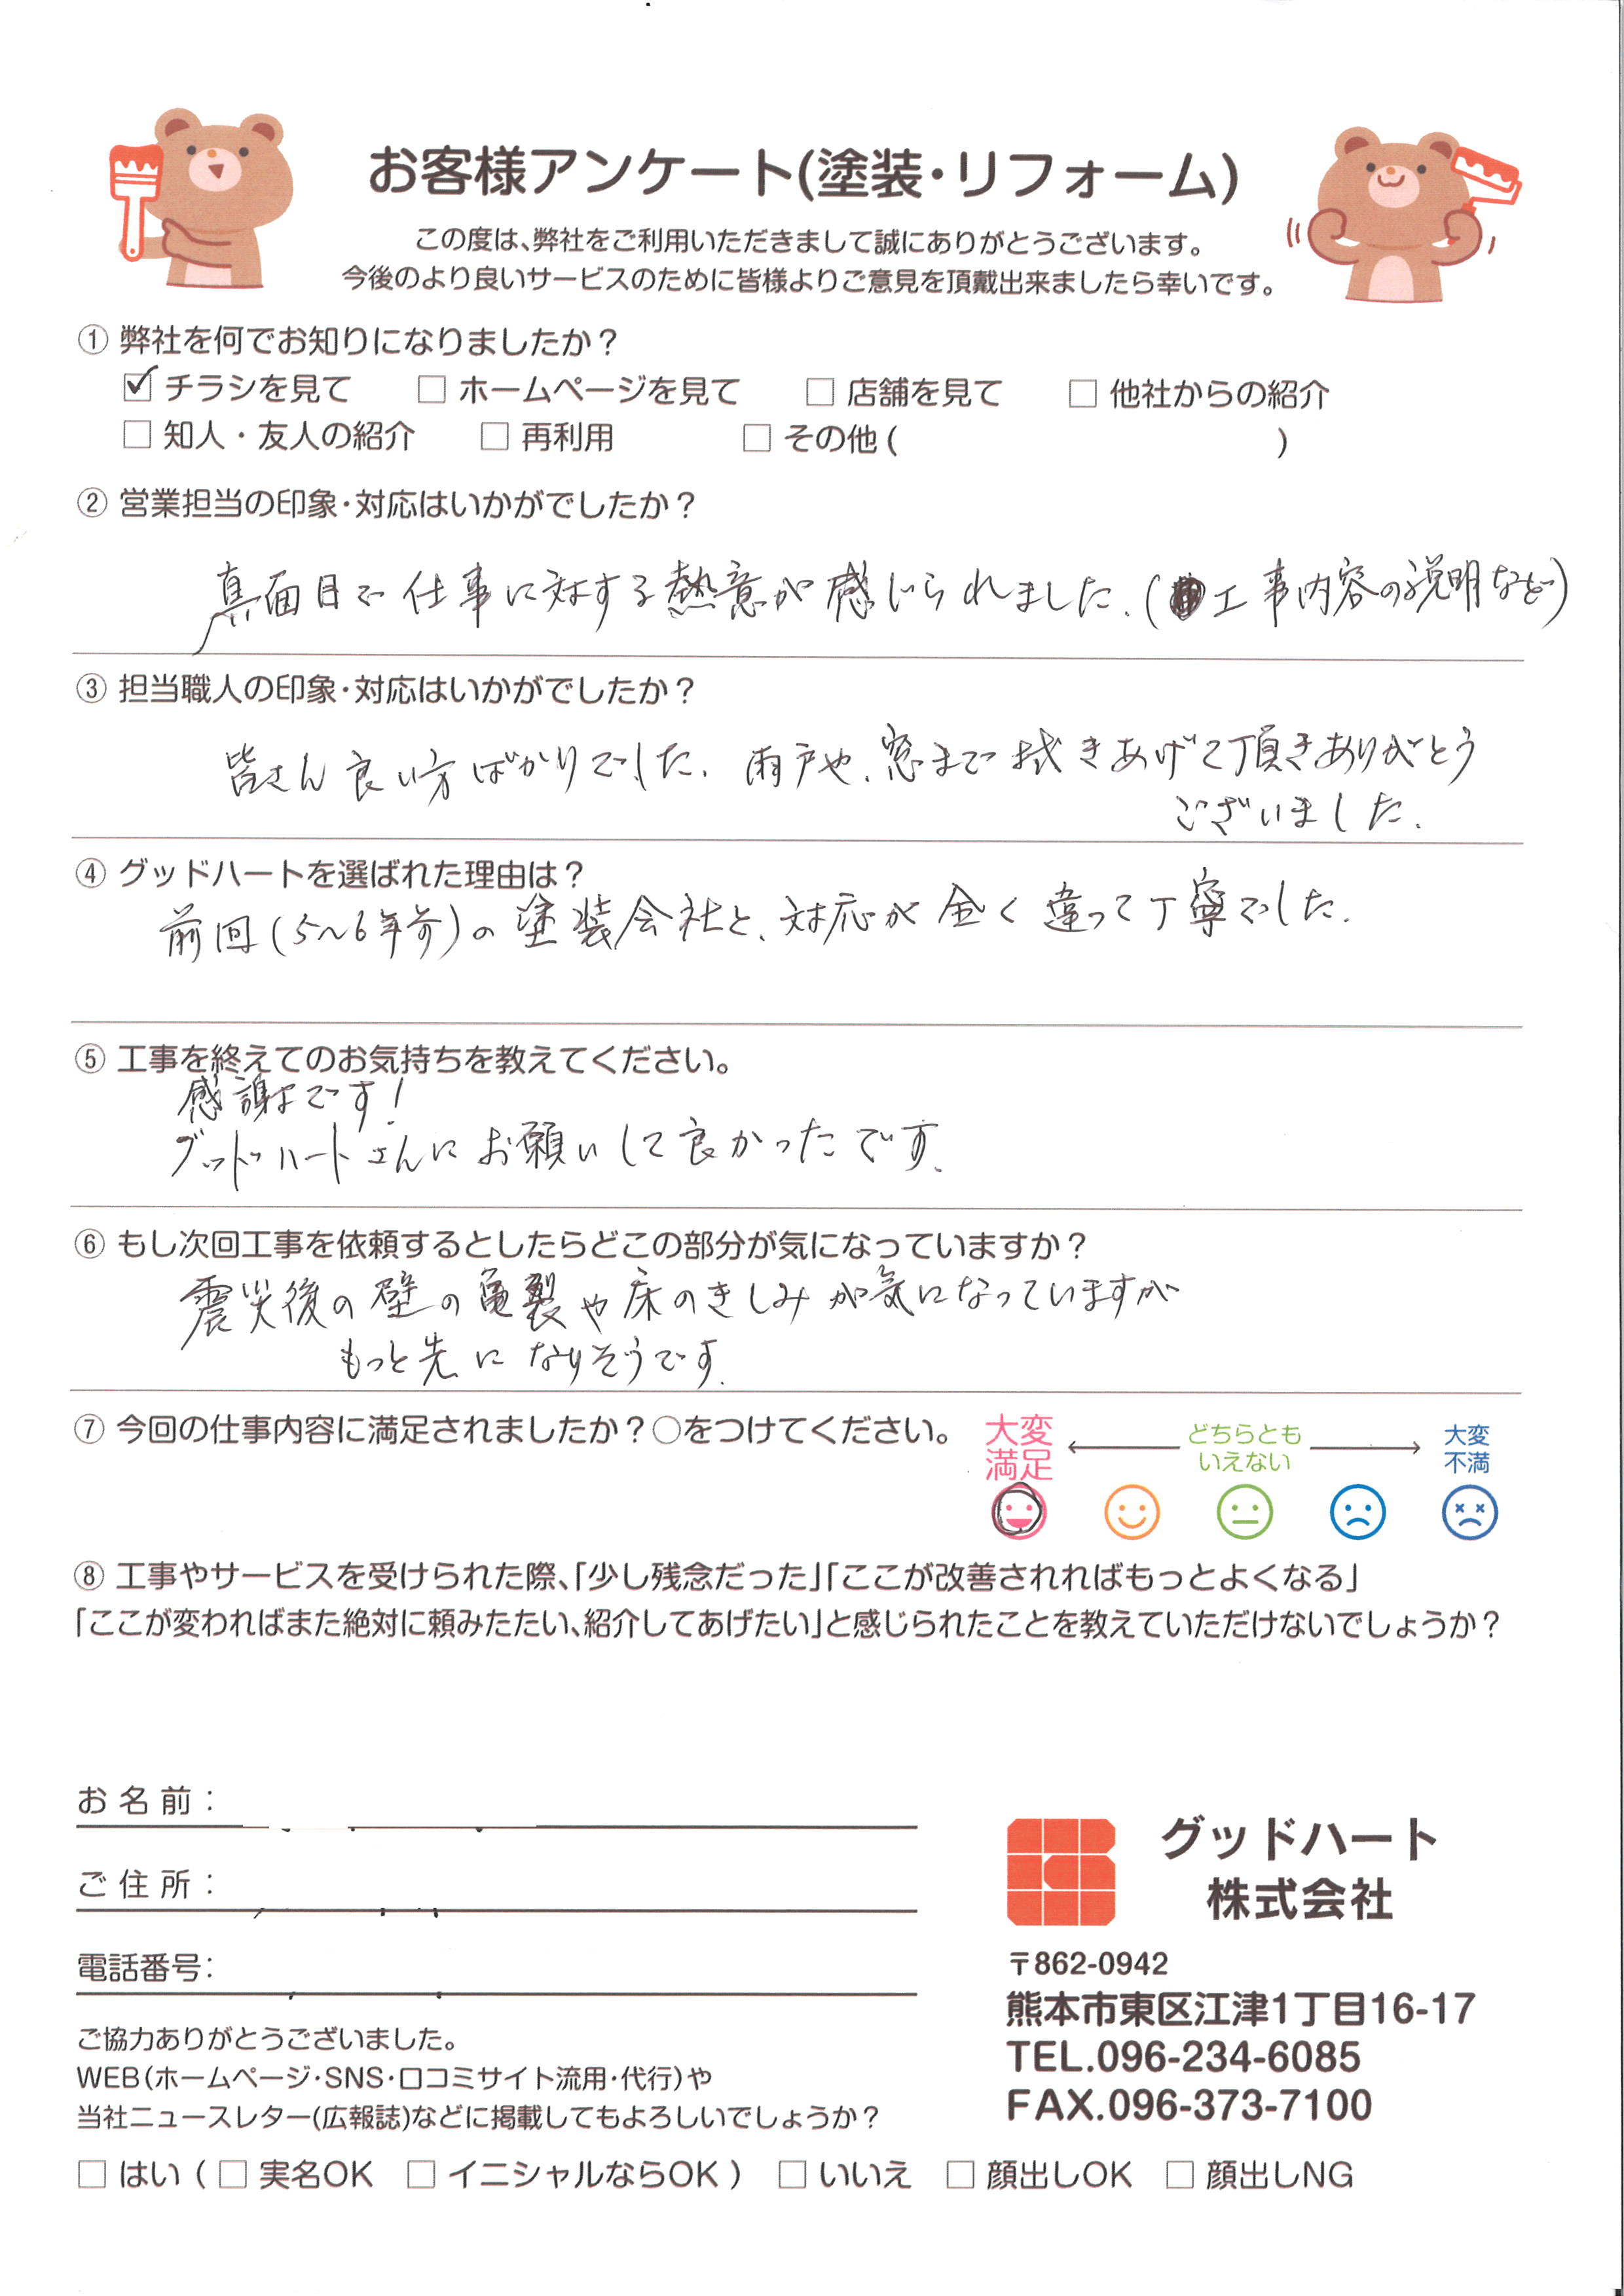 お客様アンケート(塗装・リフォーム)
この度は、弊社をご利用いただきまして誠にありがとうございます。
今後のより良いサービスのために皆様よりご意見を頂戴出来ましたら幸いです。
① 弊社を何でお知りになりましたか？
☑ チラシを見て □ ホームページを見て □ 店舗を見て □ 他社からの紹介
□ 知人・友人の紹介 □ 再利用 □ その他 ( )
② 営業担当の印象・対応はいかがでしたか？
真面目で仕事に対する熱意が感じられました.(工事内容の説明など)
③ 担当職人の印象・対応はいかがでしたか？
皆さん良い方ばかりでした. 雨戸や、窓まで拭きあげて頂きありがとう
ございました.
④ グッドハートを選ばれた理由は？
前回(5〜6年前)の塗装会社と、対応が全く違って丁寧でした.
⑤ 工事を終えてのお気持ちを教えてください。
感謝です!
グットハートさんにお願いして良かったです.
⑥ もし次回工事を依頼するとしたらどこの部分が気になっていますか？
震災後の壁の亀裂や床のきしみが気になっていますが
もっと先になりそうです.
⑦ 今回の仕事内容に満足されましたか？○をつけてください。
大変満足 どちらともいえない 大変不満
⑧ 工事やサービスを受けられた際、「少し残念だった」「ここが改善されればもっとよくなる」
「ここが変わればまた絶対に頼みたたい、紹介してあげたい」と感じられたことを教えていただけないでしょうか？
お名前：
ご住所：
電話番号：
ご協力ありがとうございました。
WEB(ホームページ・SNS・口コミサイト流用・代行)や
当社ニュースレター(広報誌)などに掲載してもよろしいでしょうか？
□ はい ( □ 実名OK □ イニシャルならOK ) □ いいえ □ 顔出しOK □ 顔出しNG
グッドハート
株式会社
〒862-0942
熊本市東区江津1丁目16-17
TEL.096-234-6085
FAX.096-373-7100